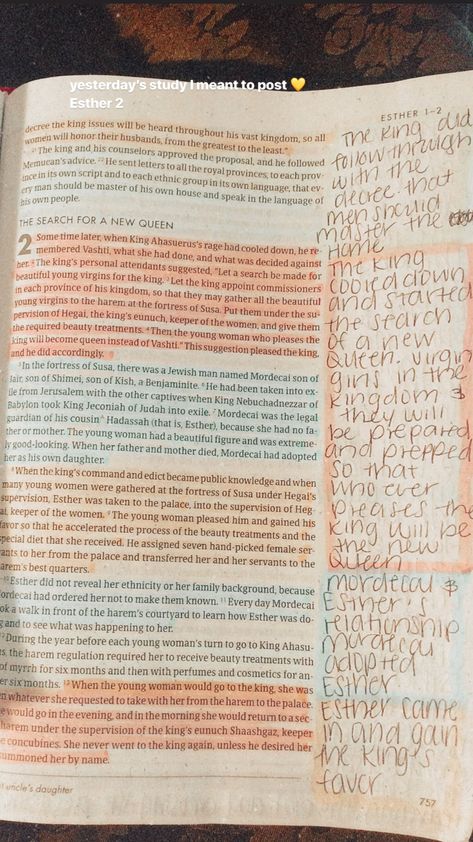 yesterday's study I meant to post 💛
Esther 2
ESTHER 1–2
decree the king issues will be heard throughout his vast kingdom, so all
women will honor their husbands, from the greatest to the least."
21 The king and his counselors approved the proposal, and he followed
Memucan's advice. 22 He sent letters to all the royal provinces, to each prov-
ince in its own script and to each ethnic group in its own language, that ev-
ery man should be master of his own house and speak in the language of
his own people.
THE SEARCH FOR A NEW QUEEN
2 Some time later, when King Ahasuerus's rage had cooled down, he re-
membered Vashti, what she had done, and what was decided against
her. 2 The king's personal attendants suggested, "Let a search be made for
beautiful young virgins for the king. 3 Let the king appoint commissioners
in each province of his kingdom, so that they may gather all the beautiful
young virgins to the harem at the fortress of Susa. Put them under the su-
pervision of Hegai, the king's eunuch, keeper of the women, and give them
the required beauty treatments. 4 Then the young woman who pleases the
king will become queen instead of Vashti." This suggestion pleased the king,
and he did accordingly.
5 In the fortress of Susa, there was a Jewish man named Mordecai son of
Jair, son of Shimei, son of Kish, a Benjaminite. 6 He had been taken into ex-
ile from Jerusalem with the other captives when King Nebuchadnezzar of
Babylon took King Jeconiah of Judah into exile. 7 Mordecai was the legal
guardian of his cousin Hadassah (that is, Esther), because she had no fa-
ther or mother. The young woman had a beautiful figure and was extreme-
ly good-looking. When her father and mother died, Mordecai had adopted
her as his own daughter.
8 When the king's command and edict became public knowledge and when
many young women were gathered at the fortress of Susa under Hegai's
supervision, Esther was taken to the palace, into the supervision of Heg-
ai, keeper of the women. 9 The young woman pleased him and gained his
favor so that he accelerated the process of the beauty treatments and the
special diet that she received. He assigned seven hand-picked female ser-
vants to her from the palace and transferred her and her servants to the
harem's best quarters.
10 Esther did not reveal her ethnicity or her family background, because
Mordecai had ordered her not to make them known. 11 Every day Mordecai
took a walk in front of the harem's courtyard to learn how Esther was do-
g and to see what was happening to her.
12 During the year before each young woman's turn to go to King Ahasu-
us, the harem regulation required her to receive beauty treatments with
of myrrh for six months and then with perfumes and cosmetics for an-
er six months. 13 When the young woman would go to the king, she was
en whatever she requested to take with her from the harem to the palace.
e would go in the evening, and in the morning she would return to a sec-
harem under the supervision of the king's eunuch Shaashgaz, keeper
e concubines. She never went to the king again, unless he desired her
summoned her by name.
uncle's daughter
757
The King did
follow through
with the
decree that
men should
master the
Home
The King
cooled down
and started
the search
of a new
Queen. virgin
gins in the
kingdom &
they will
be prepared
and prepped
so that
who ever
pleases the
King will be
the new
Queen
Mordecai &
Esther's
relationship
Mordecai
adopted
Esther
Esther came
in and gain
the King's
favor